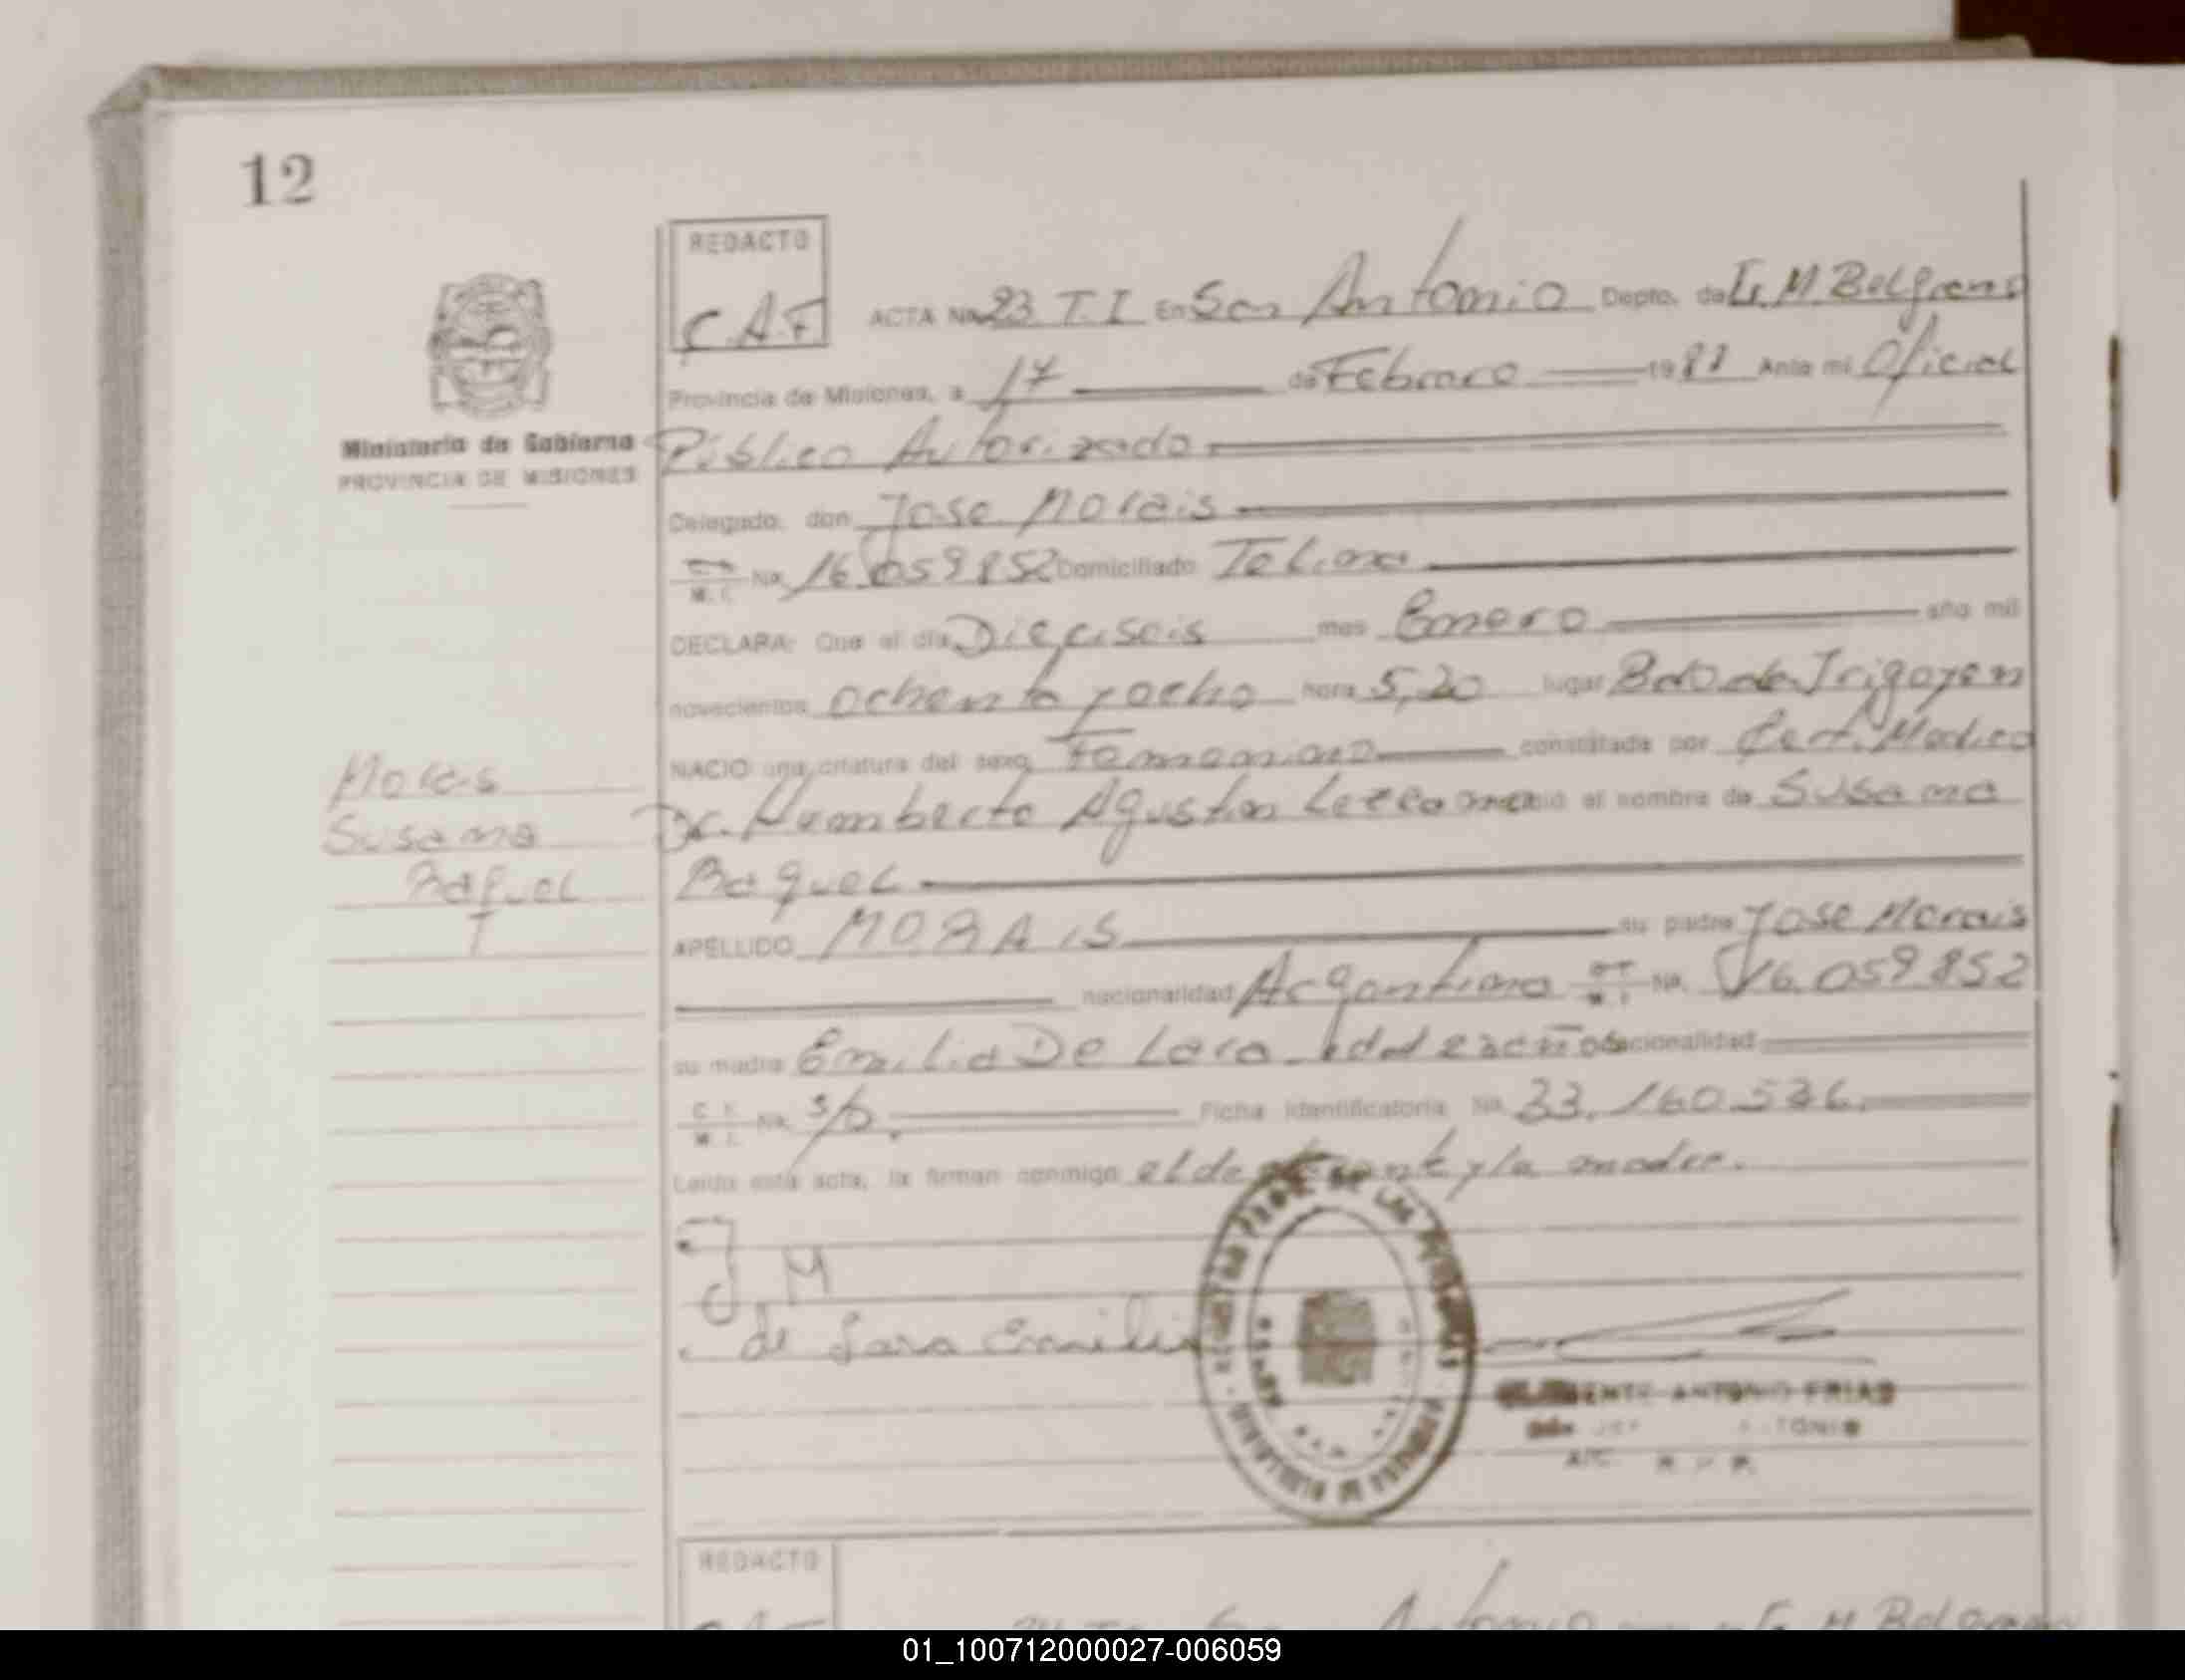 12
REDACTO
C.A.F
ACTA No 23 T.I En San Antonio Depto. de G. M Belgrano
Provincia de Misiones, a 17 de Febrero 1988 Ante mi Oficial
Ministerio de Gobierno
PROVINCIA DE MISIONES
Público Autorizado
Delegado, don Jose Morais
M. I. No 16.059852 Domiciliado
DECLARA: Que el día Dieciseis mes Enero año mil
novecientos ochenta y ocho hora 5,20 lugar Bdo de Irigoyen
NACIO una criatura del sexo Femenino constatada por Cert. Medico
Dr. Humberto Agustin el nombre de Susana
Raquel
Morais
Susana
Raquel
T
APELLIDO MORAIS su padre Jose Morais
nacionalidad Argentina M. I. No. 16.059852
su madre Emilia De Lara edad años nacionalidad
C. I. M. I. No. S/D. Ficha Identificatoria No 33.160.536.
Leída esta acta, la firman conmigo el declarante y la madre.
J M
de Lara Emilia
REGISTRO PROV. DE LAS PERSONAS
MINISTERIO DE GOBIERNO
CLEMENTE ANTONIO FRIAS
REDACTO
San Antonio G. M Belgrano
01_100712000027-006059